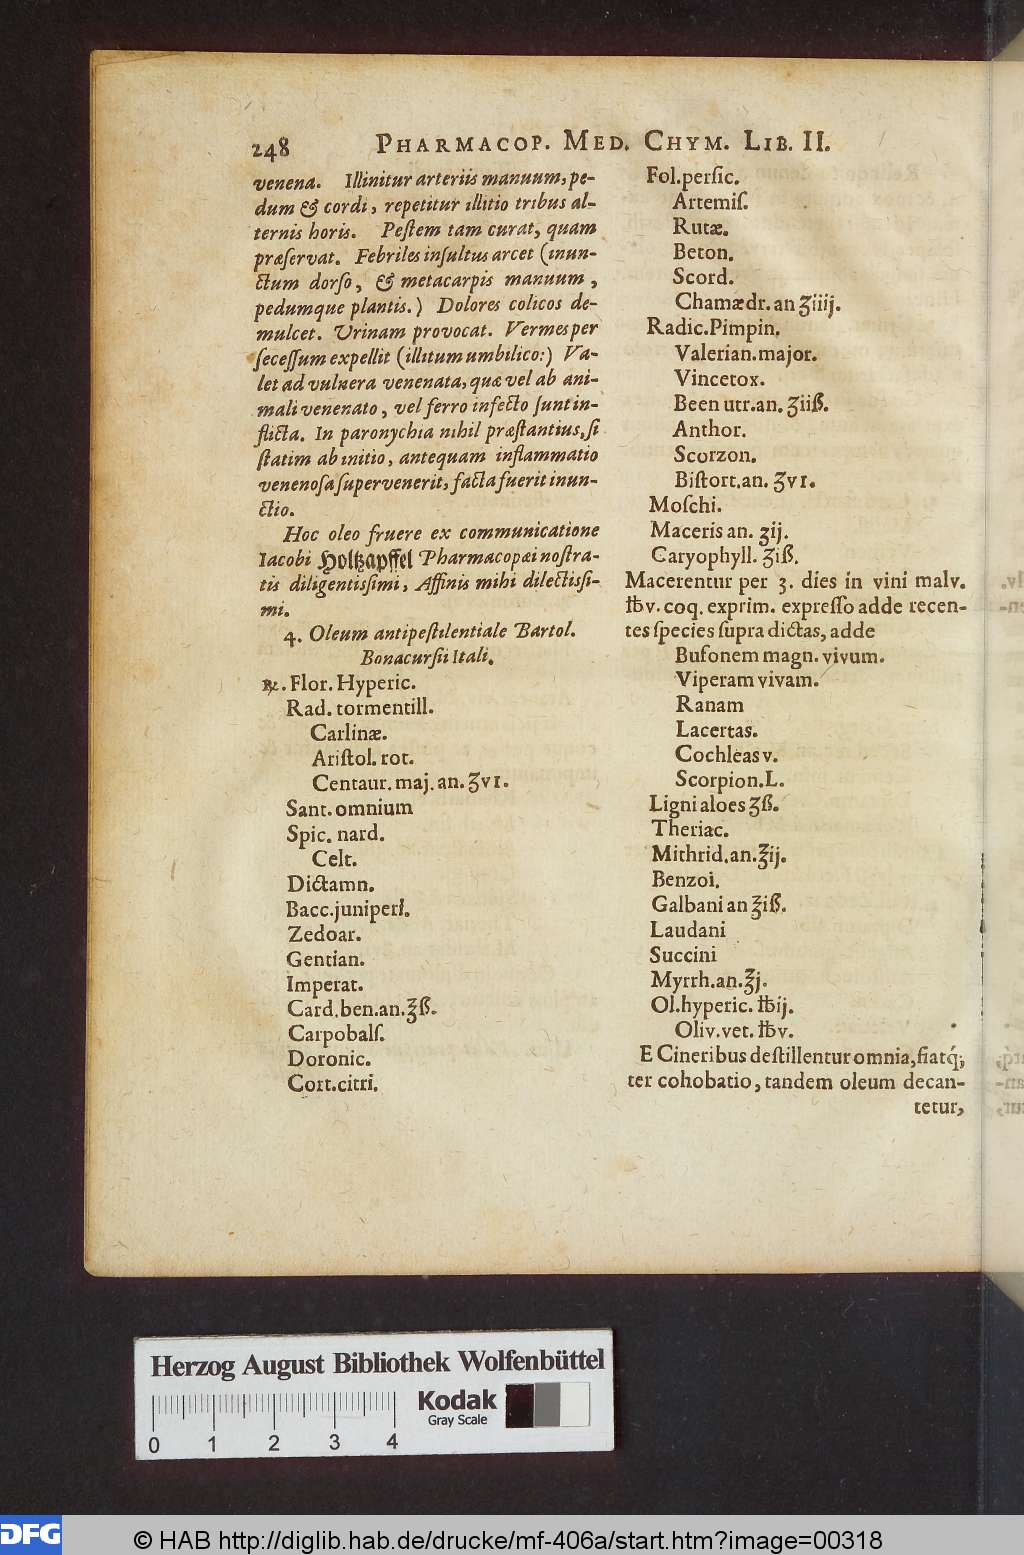 248 PHARMACOP. MED. CHYM. LIB. II.
venena. Illinitur arteriis manuum, pe-
dum & cordi, repetitur illitio tribus al-
ternis horis. Peſtem tam curat, quam
præſervat. Febriles inſultus arcet (inun-
ctum dorſo, & metacarpis manuum,
pedumque plantis.) Dolores colicos de-
mulcet. Urinam provocat. Vermes per
ſeceſſum expellit (illitum umbilico:) Va-
let ad vulnera venenata, quæ vel ab ani-
mali venenato, vel ferro infecto ſunt in-
flicta. In paronychia nihil præſtantius, ſi
ſtatim ab initio, antequam inflammatio
venenoſa ſupervenerit, facta fuerit inun-
ctio.
Hoc oleo fruere ex communicatione
Iacobi Holtzapffel Pharmacopæi noſtra-
tis diligentiſſimi, Affinis mihi dilectiſſi-
mi.
4. Oleum antipeſtilentiale Bartol.
Bonacurſii Itali.
℞. Flor. Hyperic.
Rad. tormentill.
Carlinæ.
Ariſtol. rot.
Centaur. maj. an. ʒvı.
Sant. omnium
Spic. nard.
Celt.
Dictamn.
Bacc. juniperi.
Zedoar.
Gentian.
Imperat.
Card. ben. an. ℥ß.
Carpobalſ.
Doronic.
Cort. citri.
Fol. perſic.
Artemiſ.
Rutæ.
Beton.
Scord.
Chamædr. an ʒiiij.
Radic. Pimpin.
Valerian. major.
Vincetox.
Been utr. an. ʒiiß.
Anthor.
Scorzon.
Biſtort. an. ʒvı.
Moſchi.
Maceris an. ʒij.
Caryophyll. ʒiß.
Macerentur per 3. dies in vini malv.
℔v. coq. exprim. expreſſo adde recen-
tes ſpecies ſupra dictas, adde
Bufonem magn. vivum.
Viperam vivam.
Ranam
Lacertas.
Cochleas v.
Scorpion. L.
Ligni aloes ʒß.
Theriac.
Mithrid. an. ℥ij.
Benzoi.
Galbani an ℥iß.
Laudani
Succini
Myrrh. an. ℥j.
Ol. hyperic. ℔ij.
Oliv. vet. ℔v.
E Cineribus deſtillentur omnia, fiatq́;
ter cohobatio, tandem oleum decan-
tetur,
Herzog August Bibliothek Wolfenbüttel
Kodak
Gray Scale
0 1 2 3 4
DFG
© HAB http://diglib.hab.de/drucke/mf-406a/start.htm?image=00318